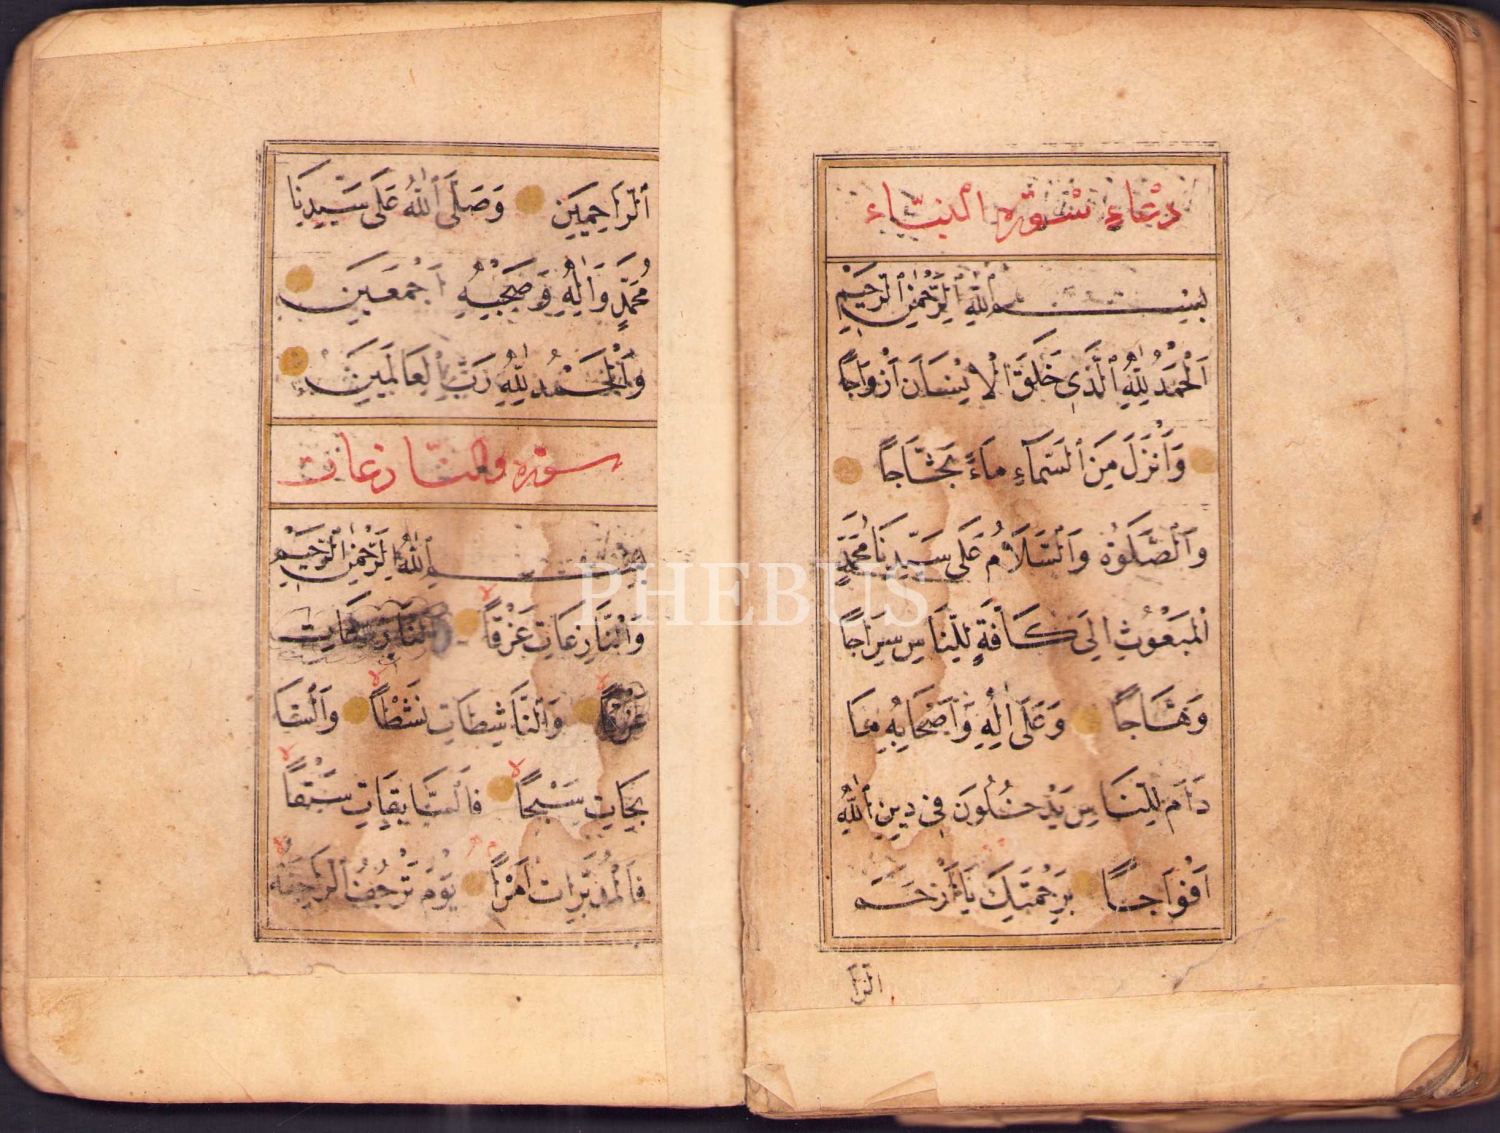 دُعَاءِ سُورَه النبَّاء
بِسْمِ اللهِ الرَّحْمٰنِ الرَّحِيمِ
اَلْحَمْدُ لِلّٰهِ الَّذِي خَلَقَ الْاِنْسَانَ اَزْوَاجًا
وَاَنْزَلَ مِنَ السَّمَآءِ مَاءً ثَجَّاجًا
وَالصَّلٰوةُ وَالسَّلَامُ عَلَى سَيِّدِنَا مُحَمَّدٍ
الْمَبْعُوثِ اِلَى كَافَّةٍ لِلنَّاسِ سِرَاجًا
وَهَّاجًا وَعَلَى اٰلِهِ وَاَصْحَابِهِ مَا
دَامَ لِلنَّاسِ يَدْخُلُونَ فِي دِينِ اللهِ
اَفْوَاجًا بِرَحْمَتِكَ يَا اَرْحَمَ
الرا
الرَّاحِمِينَ وَصَلَّى اللهُ عَلَى سَيِّدِنَا
مُحَمَّدٍ وَاٰلِهِ وَصَحْبِهِ اَجْمَعِينَ
وَالْحَمْدُ لِلّٰهِ رَبِّ الْعَالَمِينَ
سوره والنازعات
بِسْمِ اللهِ الرَّحْمٰنِ الرَّحِيمِ
وَالنَّازِعَاتِ غَرْقًا
وَالنَّاشِطَاتِ نَشْطًا وَالسَّا
بِحَاتِ سَبْحًا فَالسَّابِقَاتِ سَبْقًا
فَالْمُدَبِّرَاتِ اَمْرًا يَوْمَ تَرْجُفُ الرَّاجِفَةُ
PHEBUS